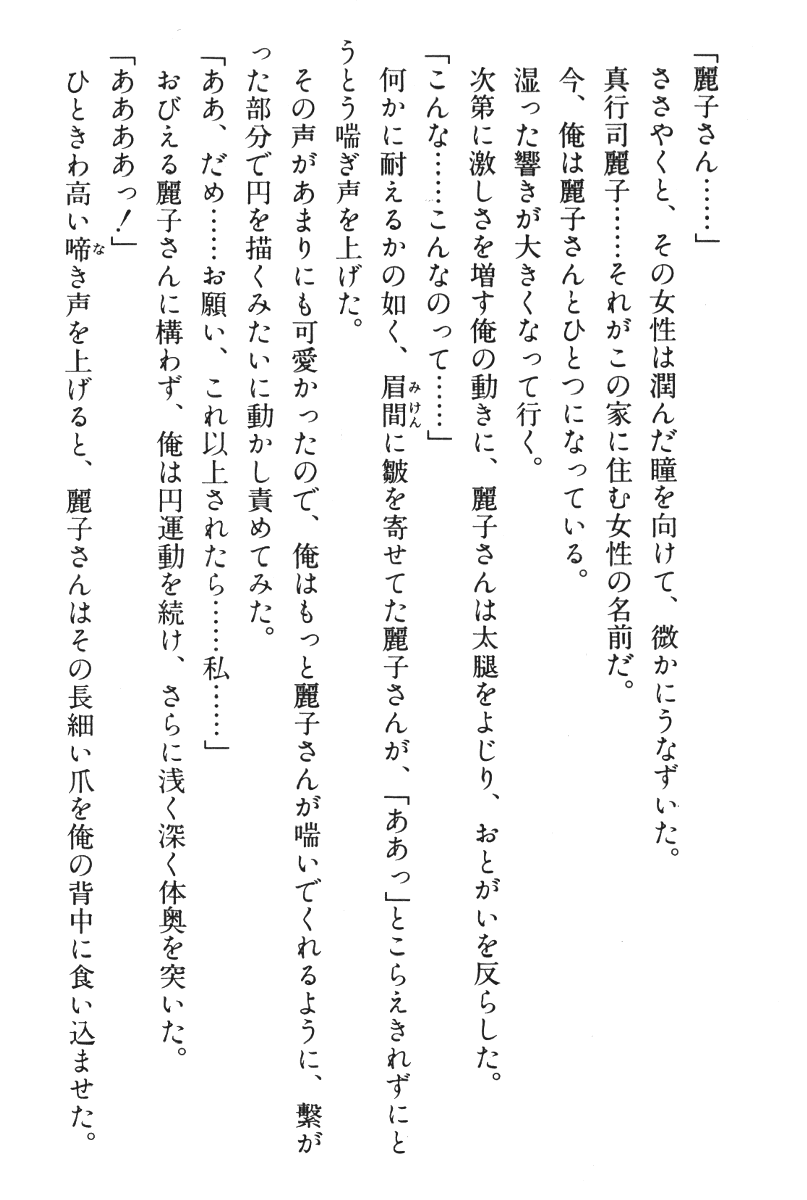 「麗子さん……」
ささやくと、その女性は潤んだ瞳を向けて、微かにうなずいた。
真行司麗子……それがこの家に住む女性の名前だ。
今、俺は麗子さんとひとつになっている。
湿った響きが大きくなって行く。
次第に激しさを増す俺の動きに、麗子さんは太腿をよじり、おとがいを反らした。
「こんな……こんなのって……」
何かに耐えるかの如く、眉間に皺を寄せてた麗子さんが、「ああっ」とこらえきれずにと
うとう喘ぎ声を上げた。
その声があまりにも可愛かったので、俺はもっと麗子さんが喘いでくれるように、繋が
った部分で円を描くみたいに動かし責めてみた。
「ああ、だめ……お願い、これ以上されたら……私……」
おびえる麗子さんに構わず、俺は円運動を続け、さらに浅く深く体奥を突いた。
「ああああっ！」
ひときわ高い啼き声を上げると、麗子さんはその長細い爪を俺の背中に食い込ませた。